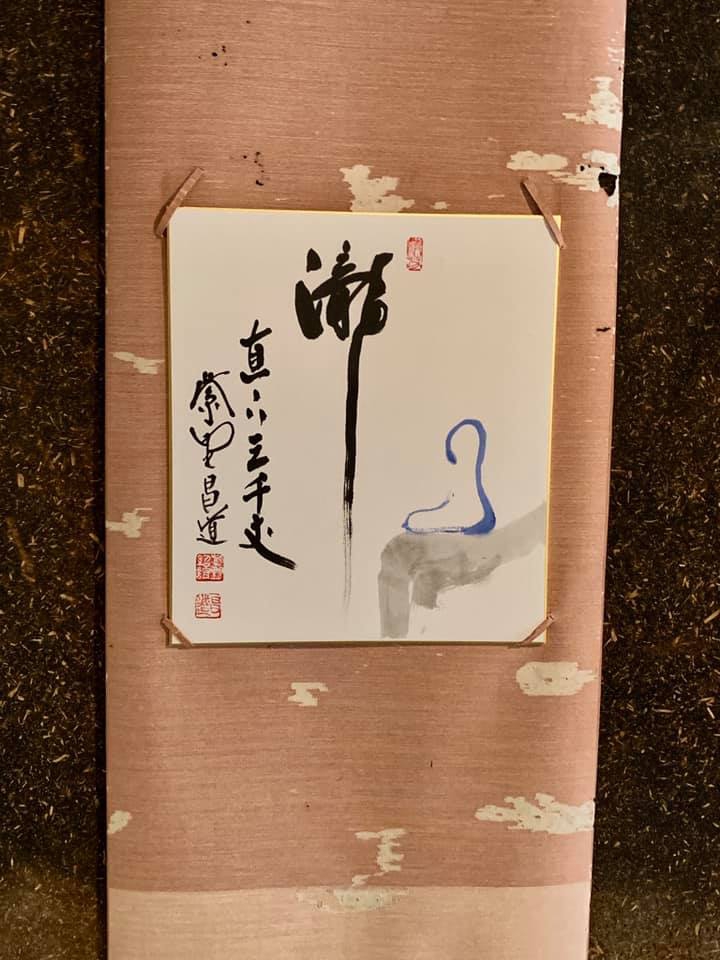 瀧
直下三千丈
紫野昌道